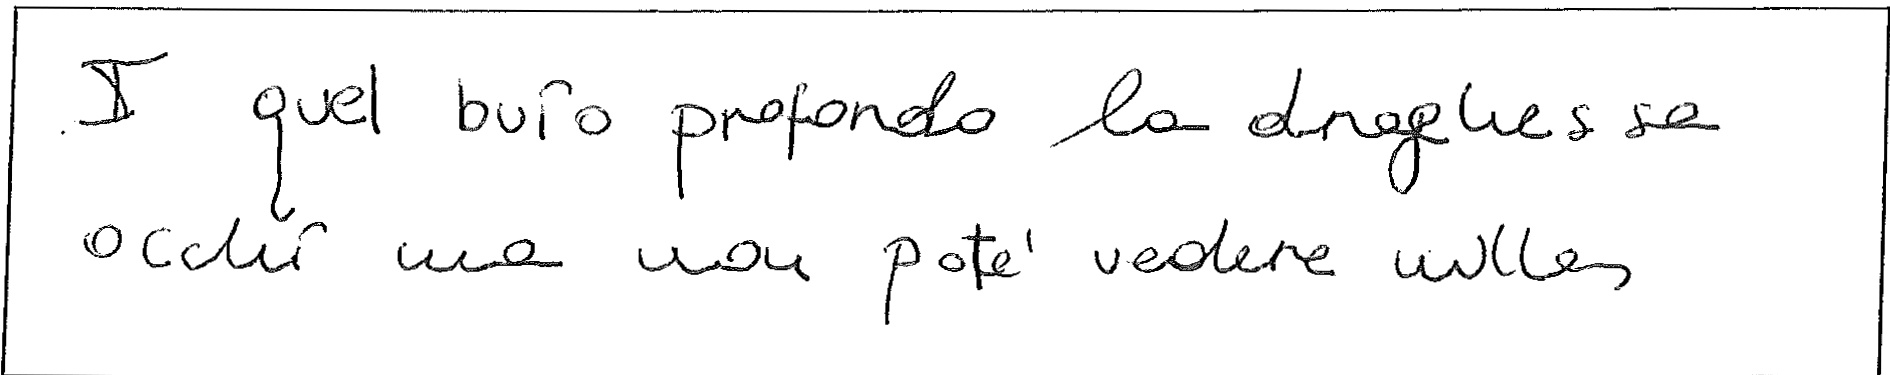 I quel buio profondo la draghessa
occhi ma non poté vedere nulla,